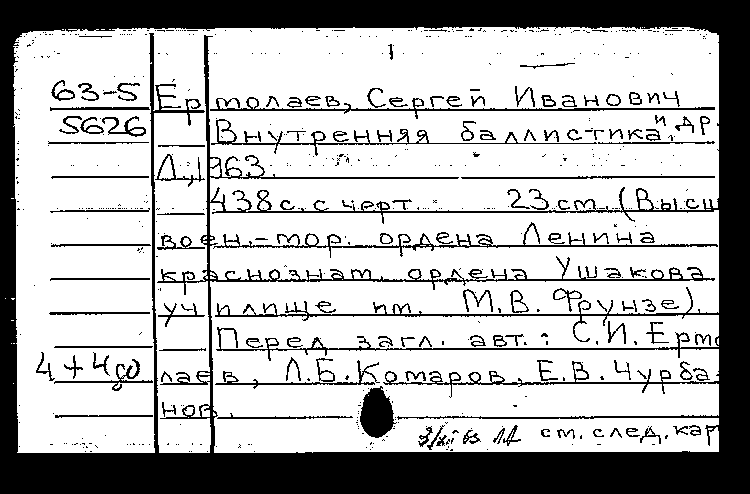 1
63-5 Ермолаев, Сергей Иванович
5626 Внутренняя баллистика и др.
Л., 1963.
438 с. с черт. 23 см. (Высш.
воен.-мор. ордена Ленина
краснознам. ордена Ушакова
училище им. М.В. Фрунзе).
Перед загл. авт.: С.И. Ермо-
4+4 лаев, Л.Б. Комаров, Е.В. Чурба-
нов.
см. след. кар